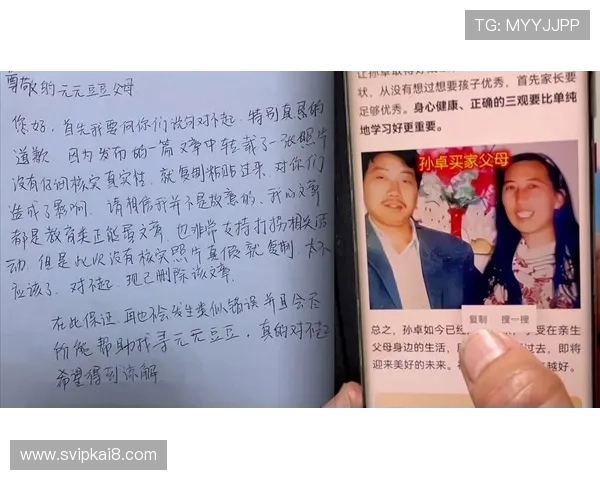 TG: MYYJJPP
尊敬的元元豆豆父母
您好,首先我要向你们说句对不起,特别真诚的
道歉,因为发布的一篇文章中转载了一张照片
没有仔细核实真实性,就复制粘贴过来,对你们
造成了影响,请相信我并不是故意的,我的文章
都是教育类正能量文章,也非常支持打拐相关活
动,但是此次没有核实照片真假就复制,太不
应该了,对不起,现已删除该文章,
在此保证,再也不会发生类似错误并且会尽
所能帮助找寻元元豆豆,真的对不起
希望得到谅解
状,从没有想过想要孩子优秀,首先家长要
足够优秀。身心健康、正确的三观要比单纯
地学习好更重要。
孙卓买家父母
复制 搜一搜
总之,孙卓如今已经
受在亲生
父母身边的生活,
过去,即将
迎来美好的未来。
越好。
www.svipkai8.com